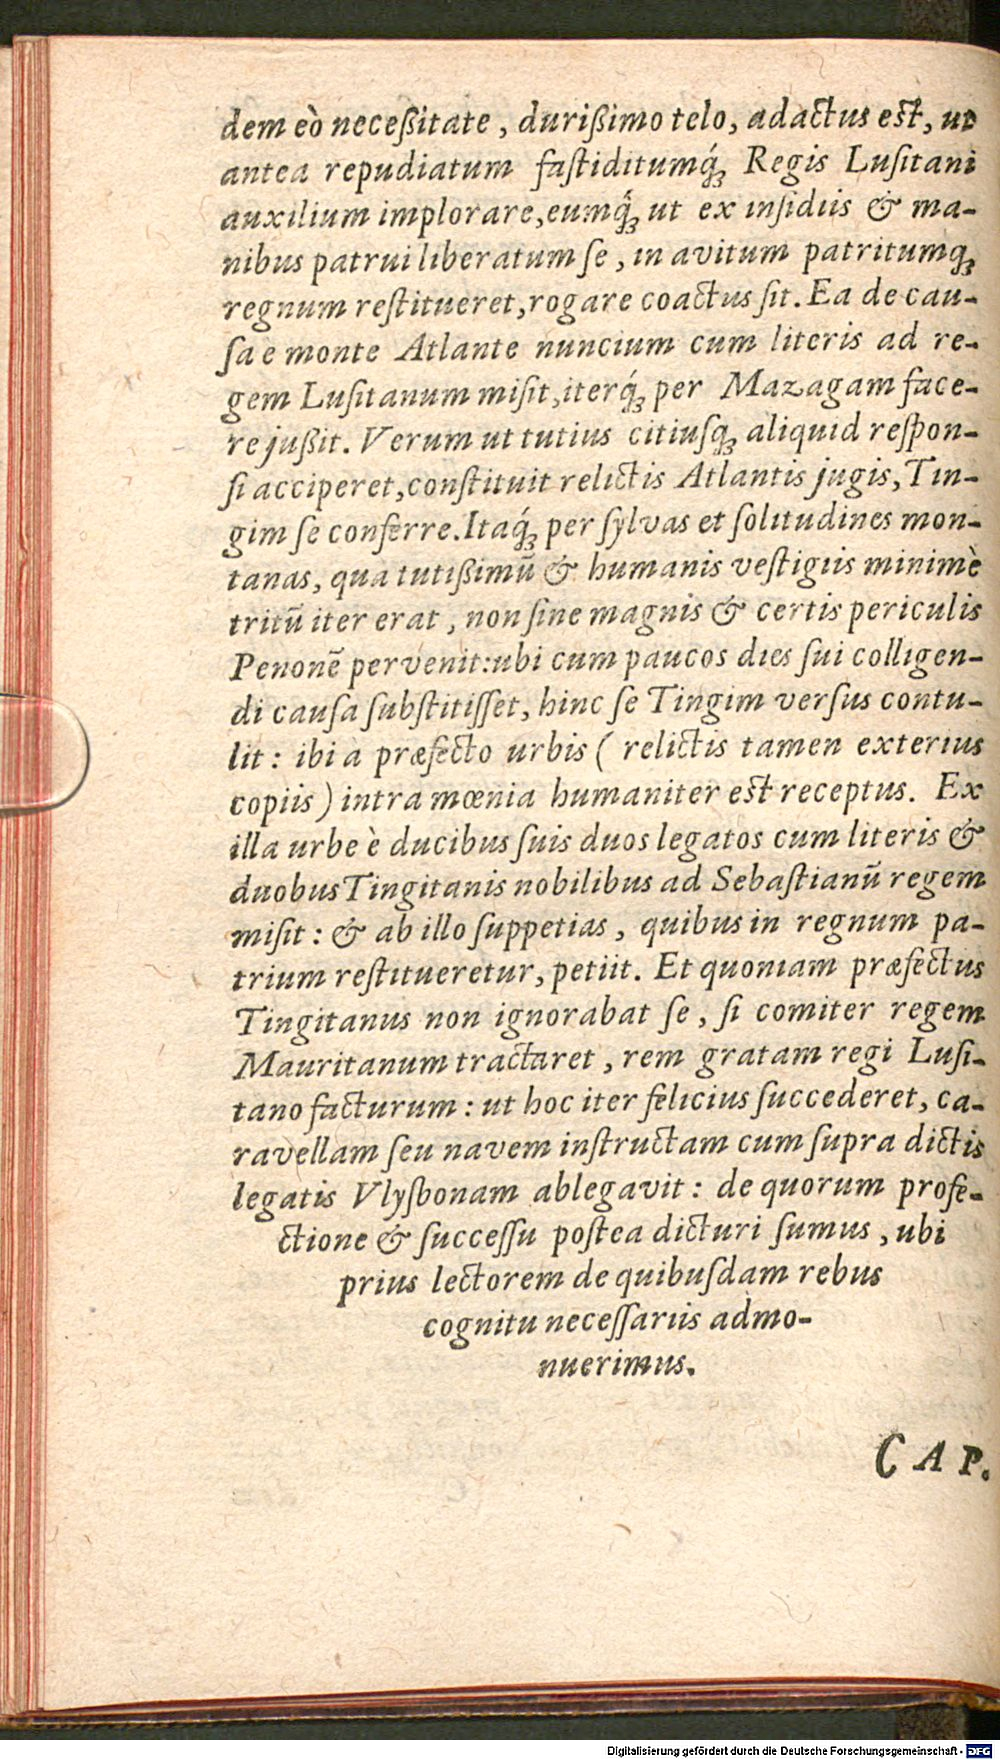 dem eò neceßitate, durißimo telo, adactus est, ut
antea repudiatum faſtiditumq́ꝫ Regis Luſitani
auxilium implorare, eumq́ꝫ ut ex inſidiis & ma-
nibus patrui liberatum ſe, in avitum patritumqꝫ
regnum reſtitueret, rogare coactus ſit. Ea de cau-
ſa e monte Atlante nuncium cum literis ad re-
gem Luſitanum miſit, iterq́ꝫ per Mazagam face-
re jußit. Verum ut tutius citiuſqꝫ aliquid reſpon-
ſi acciperet, conſtituit relictis Atlantis jugis, Tin-
gim ſe conferre. Itaq́ꝫ per ſylvas et ſolitudines mon-
tanas, qua tutißimū & humanis veſtigiis minimè
tritū iter erat, non ſine magnis & certis periculis
Penonē pervenit: ubi cum paucos dies ſui colligen-
di cauſa ſubſtitiſſet, hinc ſe Tingim verſus contu-
lit: ibi a præfecto urbis (relictis tamen exterius
copiis) intra mœnia humaniter est receptus. Ex
illa urbe è ducibus ſuis duos legatos cum literis &
duobus Tingitanis nobilibus ad Sebaſtianū regem
miſit: & ab illo ſuppetias, quibus in regnum pa-
trium reſtitueretur, petiit. Et quoniam præfectus
Tingitanus non ignorabat ſe, ſi comiter regem
Mauritanum tractaret, rem gratam regi Luſi-
tano facturum: ut hoc iter felicius ſuccederet, ca-
ravellam ſeu navem inſtructam cum ſupra dictis
legatis Vlyſbonam ablegavit: de quorum profe-
ctione & ſucceſſu poſtea dicturi ſumus, ubi
prius lectorem de quibuſdam rebus
cognitu neceſſariis admo-
nuerimus.
CAP.
Digitalisierung gefördert durch die Deutsche Forschungsgemeinschaft - DFG